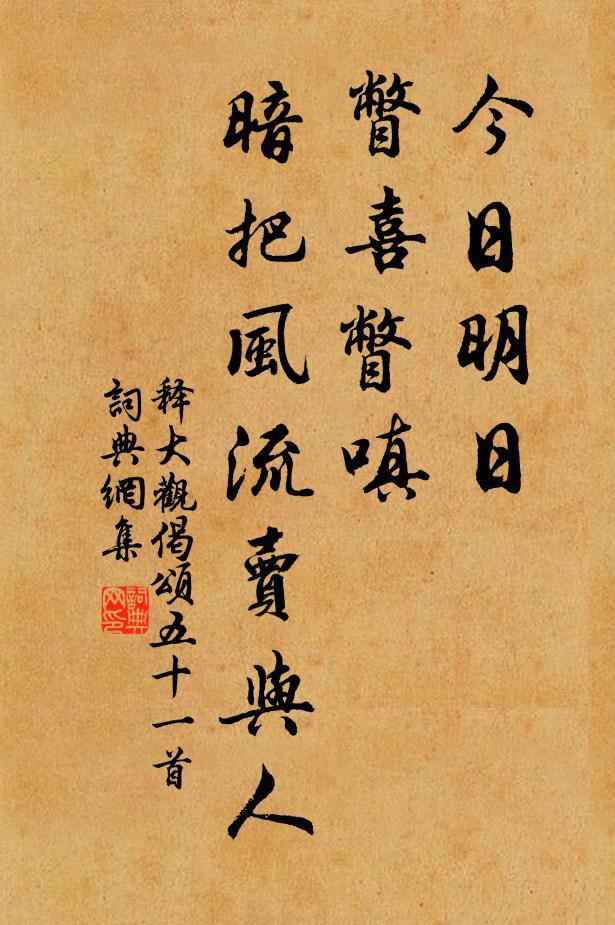 今日明日
瞥喜瞥嗔
暗把風流賣與人
释大觀偈頌五十一首
詞典網集
詞典
网印